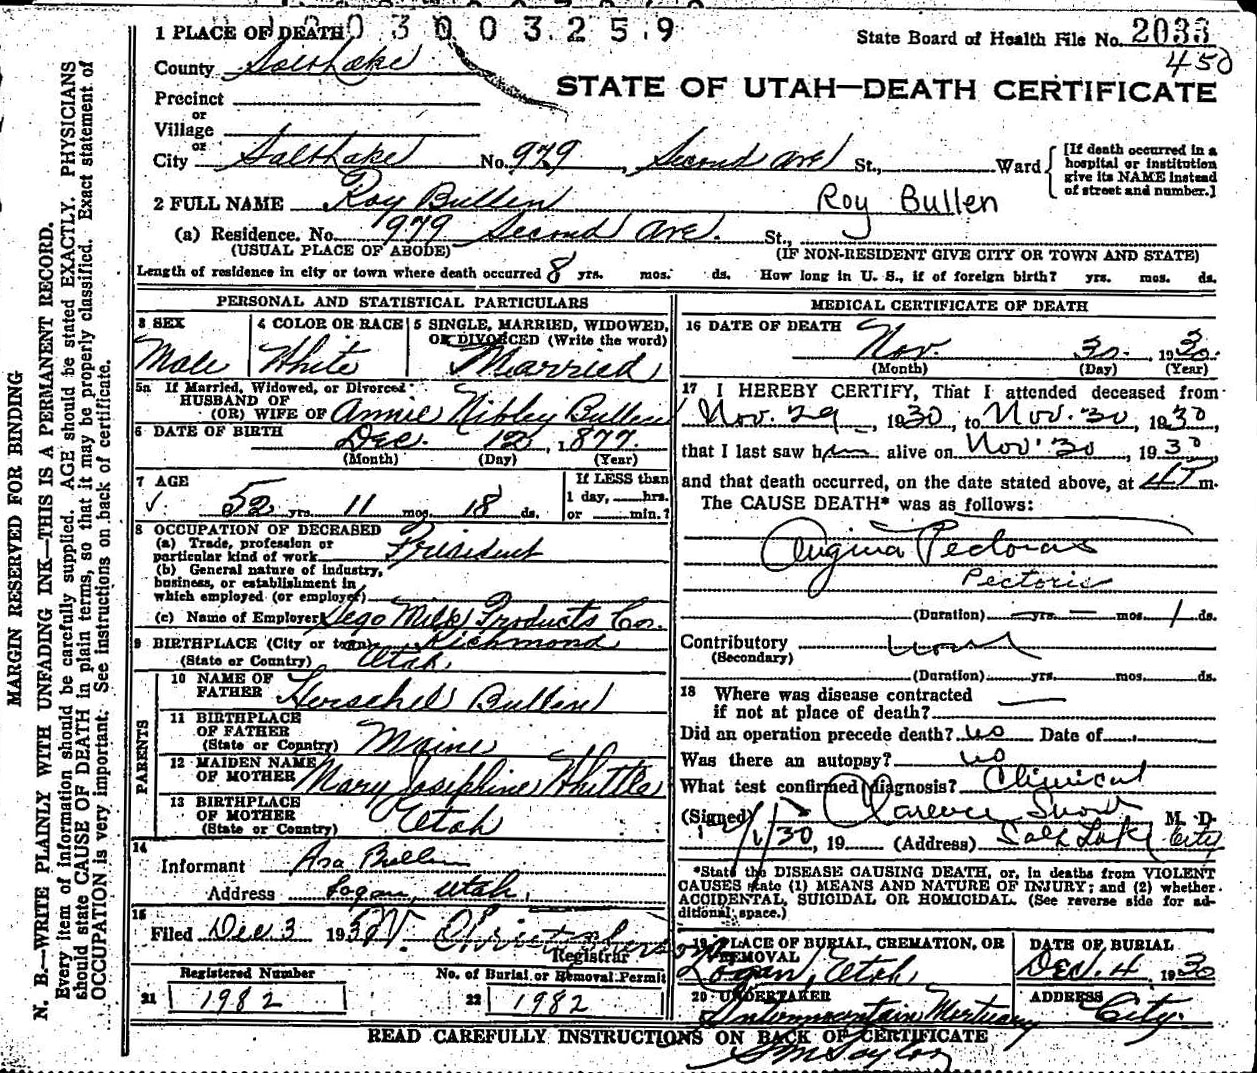 1 PLACE OF DEATH 3 0 0 3 2 5 9
State Board of Health File No. 2033
450
County Salt Lake
STATE OF UTAH—DEATH CERTIFICATE
Precinct
or
Village
or
City Salt Lake No. 979, Second ave St., Ward
[If death occurred in a
hospital or institution
give its NAME instead
of street and number.]
2 FULL NAME Roy Bullen Roy Bullen
(a) Residence. No. 979 Second ave. St.,
(USUAL PLACE OF ABODE) (IF NON-RESIDENT GIVE CITY OR TOWN AND STATE)
Length of residence in city or town where death occurred 8 yrs. mos. ds. How long in U. S., if of foreign birth? yrs. mos. ds.
PERSONAL AND STATISTICAL PARTICULARS
3 SEX
Male
4 COLOR OR RACE
White
5 SINGLE, MARRIED, WIDOWED,
OR DIVORCED (Write the word)
Married
5a If Married, Widowed, or Divorced
HUSBAND OF
(OR) WIFE OF Annie Nibley Bullen
6 DATE OF BIRTH Dec. 12, 1877
(Month) (Day) (Year)
7 AGE
52 yrs. 11 mos. 18 ds.
If LESS than
1 day, hrs.
or min.?
8 OCCUPATION OF DECEASED
(a) Trade, profession or
particular kind of work President
(b) General nature of industry,
business, or establishment in
which employed (or employer)
(c) Name of Employer Sego Milk Products Co.
9 BIRTHPLACE (City or town) Richmond
(State or Country) Utah
PARENTS
10 NAME OF
FATHER Herschel Bullen
11 BIRTHPLACE
OF FATHER
(State or Country) Maine
12 MAIDEN NAME
OF MOTHER Mary Josephine Whittle
13 BIRTHPLACE
OF MOTHER
(State or Country) Utah
14
Informant Asa Bullen
Address Logan, Utah.
15
Filed Dec. 3 1930
Registrar
Registered Number
21 1982
No. of Burial or Removal Permit
22 1982
MEDICAL CERTIFICATE OF DEATH
16 DATE OF DEATH Nov. 30. 1930.
(Month) (Day) (Year)
17 I HEREBY CERTIFY, That I attended deceased from
Nov. 29, 1930, to Nov. 30, 1930,
that I last saw him alive on Nov. 30, 1930
and that death occurred, on the date stated above, at m.
The CAUSE DEATH* was as follows:
Angina Pectoras
Pectoris
(Duration) yrs. mos. 1 ds.
Contributory
(Secondary)
(Duration) yrs. mos. ds.
18 Where was disease contracted
if not at place of death?
Did an operation precede death? no Date of
Was there an autopsy? no
What test confirmed diagnosis? Clinical
(Signed) Clarence Snow M. D.
12/1/30, 19 (Address) Salt Lake City
*State the DISEASE CAUSING DEATH, or, in deaths from VIOLENT
CAUSES state (1) MEANS AND NATURE OF INJURY; and (2) whether
ACCIDENTAL, SUICIDAL OR HOMICIDAL. (See reverse side for ad-
ditional space.)
19 PLACE OF BURIAL, CREMATION, OR
REMOVAL
Logan, Utah
DATE OF BURIAL
Dec. 4 1930
20 UNDERTAKER
Intermountain Mortuary
ADDRESS
City.
READ CAREFULLY INSTRUCTIONS ON BACK OF CERTIFICATE
S M Taylor
MARGIN RESERVED FOR BINDING
N. B.—WRITE PLAINLY WITH UNFADING INK—THIS IS A PERMANENT RECORD.
Every item of information should be carefully supplied. AGE should be stated EXACTLY. PHYSICIANS
should state CAUSE OF DEATH in plain terms, so that it may be properly classified. Exact statement of
OCCUPATION is very important. See instructions on back of certificate.